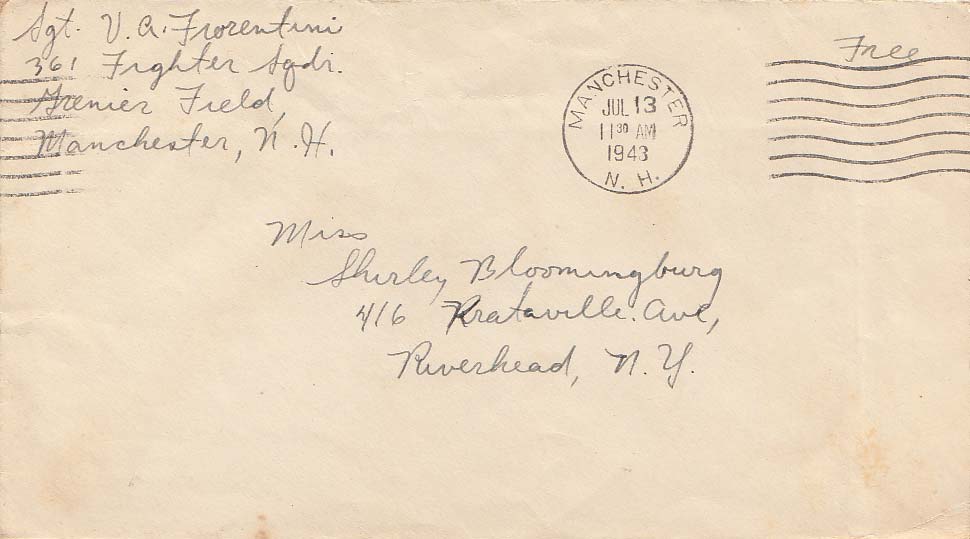 Sgt. V. A. Fiorentini
361 Fighter Sqdr.
Grenier Field,
Manchester, N. H.
Free
MANCHESTER
JUL 13
11 30 AM
1943
N. H.
Miss
Shirley Bloomingburg
416 Krataville. Ave,
Riverhead, N. Y.